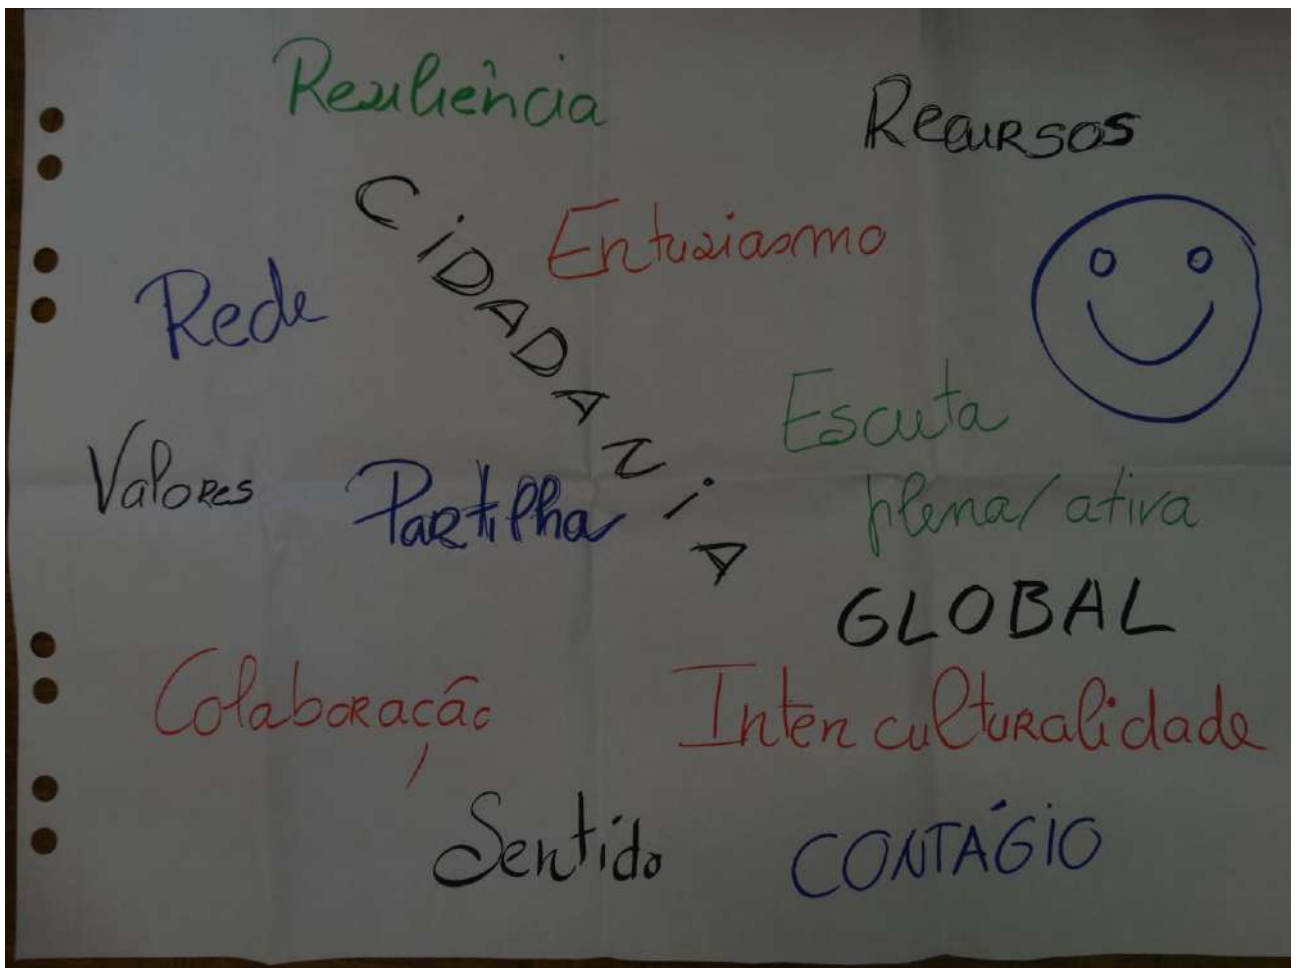 Resiliência
Recursos
CiDADANiA
Entusiasmo
Rede
Escuta
plena/ativa
Valores
Partilha
GLOBAL
Colaboração
Interculturalidade
Sentido
CONTÁGiO